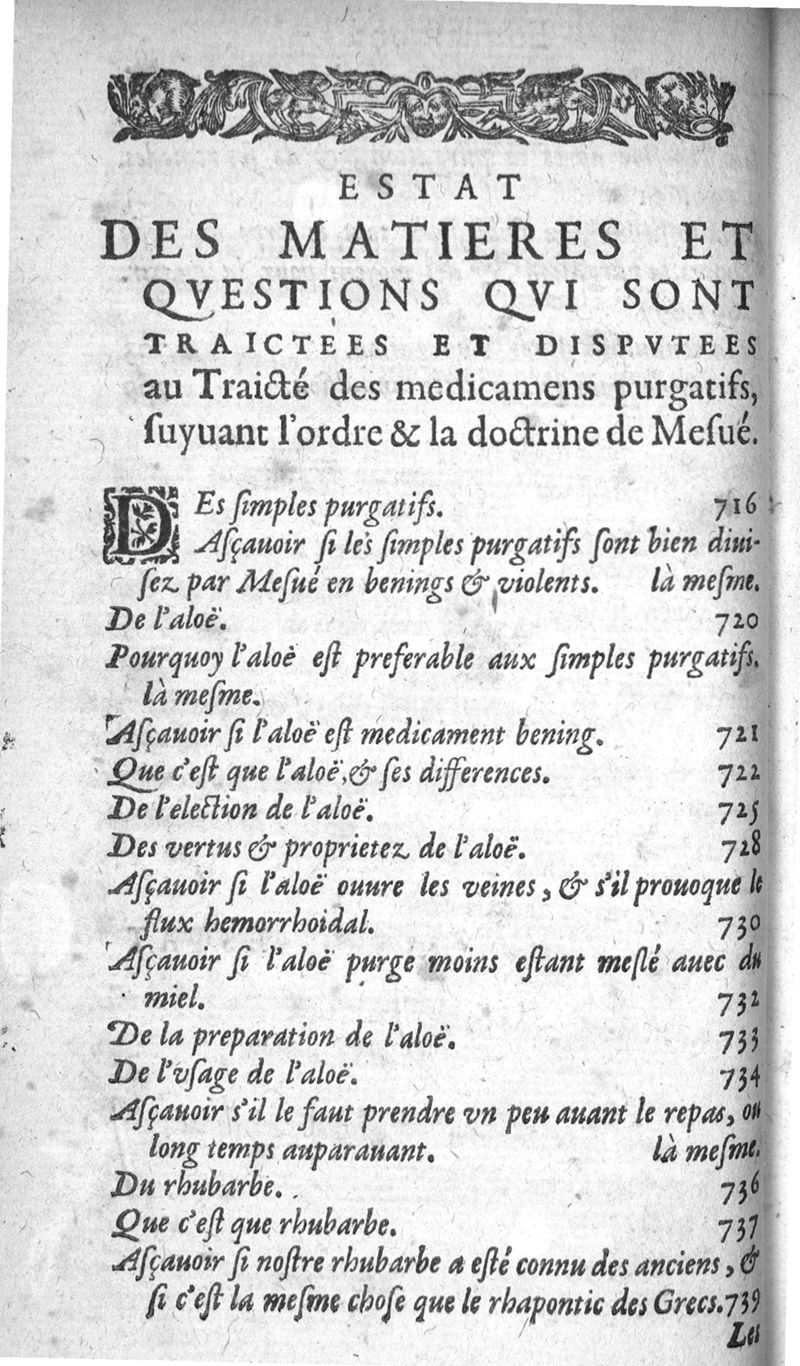 ESTAT
DES MATIERES ET
QVESTIONS QVI SONT
TRAICTEES ET DISPVTEES
au Traicté des medicamens purgatifs,
ſuyuant l'ordre & la doctrine de Meſué.
DEs ſimples purgatifs. 716
Aſçauoir ſi les ſimples purgatifs ſont bien diui-
ſez par Meſué en benings & violents. là meſme.
De l'aloë. 720
Pourquoy l'aloë eſt preferable aux ſimples purgatifs.
là meſme.
Aſçauoir ſi l'aloë eſt medicament bening. 721
Que c'eſt que l'aloë, & ſes differences. 722
De l'election de l'aloë. 725
Des vertus & proprietez de l'aloë. 728
Aſçauoir ſi l'aloë ouure les veines, & s'il prouoque le
flux hemorrhoidal. 730
Aſçauoir ſi l'aloë purge moins eſtant meſlé auec du
miel. 732
De la preparation de l'aloë. 733
De l'vſage de l'aloë. 734
Aſçauoir s'il le faut prendre vn peu auant le repas, ou
long temps auparauant. là meſme.
Du rhubarbe. 736
Que c'eſt que rhubarbe. 737
Aſçauoir ſi noſtre rhubarbe a eſté connu des anciens, &
ſi c'eſt la meſme choſe que le rhapontic des Grecs. 739
Les